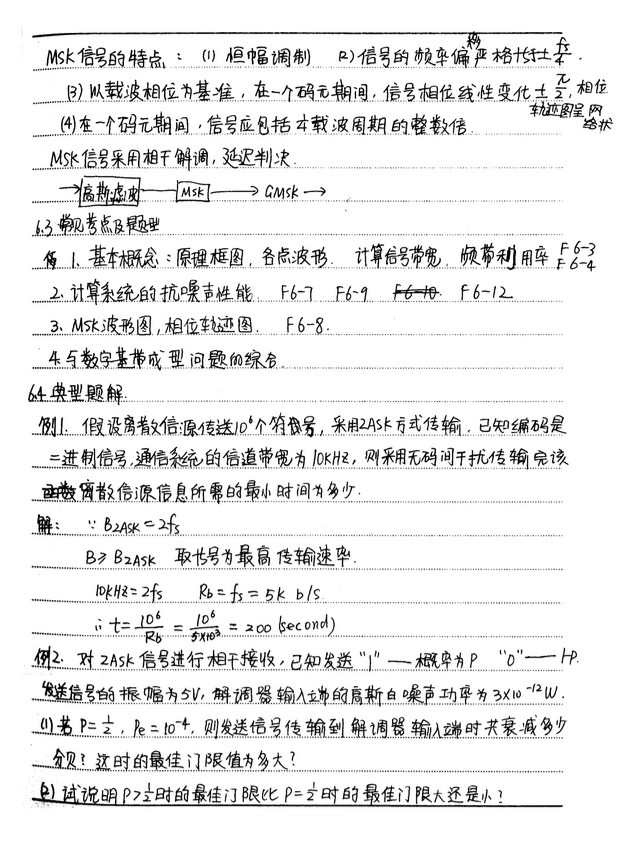 MSK信号的特点：(1) 恒幅调制 (2) 信号的频率偏移严格地等于±fs/4.
(3) 以载波相位为基准，在一个码元期间，信号相位线性变化±π/2，相位轨迹图呈网络状
(4) 在一个码元期间，信号应包括1/4载波周期的整数倍
MSK信号采用相干解调，延迟判决.
→ 高斯滤波 — MSK → GMSK →
6.3 常见考点及题型
1. 基本概念：原理框图，各点波形. 计算信号带宽，频带利用率 F6-3 F6-4
2. 计算系统的抗噪声性能. F6-7 F6-9 F6-10. F6-12
3. MSK波形图，相位轨迹图. F6-8.
4. 与数字基带成型问题的综合.
6.4 典型题解.
例1. 假设离散信源传送10⁶个符号，采用2ASK方式传输，已知编码是
二进制信号，通信系统的信道带宽为10KHz，则采用无码间干扰传输完该
离散信源信息所需的最小时间为多少.
解： ∵ B2ASK = 2fs
B ≥ B2ASK 取等号为最高传输速率.
10KHz = 2fs Rb = fs = 5k b/s.
∴ t = 10⁶/Rb = 10⁶/5×10³ = 200 (second)
例2. 对2ASK信号进行相干接收，已知发送"1"——概率为P "0"——1-P.
发送信号的振幅为5V，解调器输入端的高斯白噪声功率为3×10⁻¹²W.
(1) 若P=1/2，Pe=10⁻⁴，则发送信号传输到解调器输入端时共衰减多少
分贝？这时的最佳门限值为多大？
(2) 试说明P>1/2时的最佳门限比P=1/2时的最佳门限大还是小？